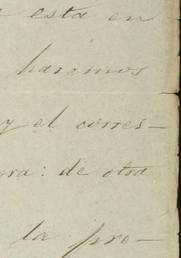 esta en
haremos
y el corres-
gra: de otra
la pro-